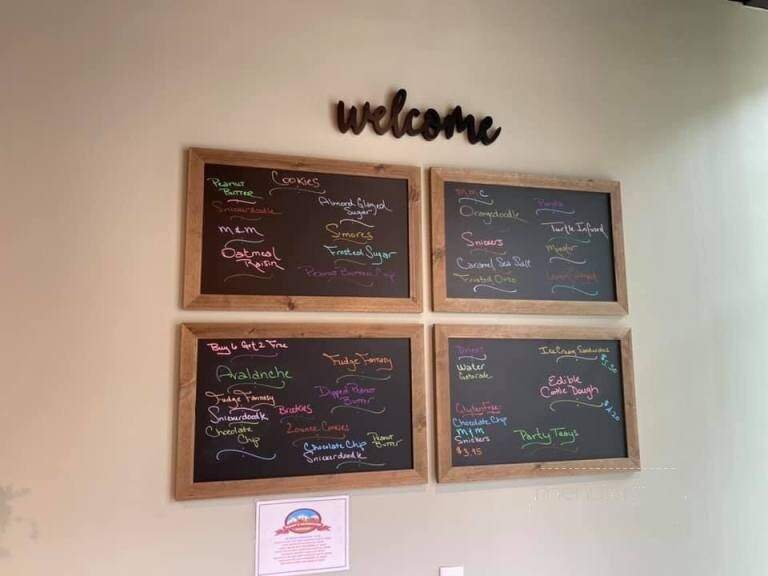 welcome
Cookies
Peanut
Butter
Snickerdoodle
M&M
Oatmeal
Raisin
Almond Glazed
Sugar
S'mores
Frosted Sugar
Peanut Butter Cup
M.M.C
Orangedoodle
Snickers
Caramel Sea Salt
Frosted Oreo
Turtle Infused
Monster
Buy 6 Get 2 Free
Avalanche
Fudge Fantasy
Snickerdoodle
Chocolate
Chip
Brookies
Fudge Fantasy
Dipped Peanut
Butter
Lounge Cookies
Chocolate Chip
Snickerdoodle
Peanut
Butter
Drinks
Water
Gatorade
Gluten Free
Chocolate Chip
M&M
Snickers
$3.95
Ice Cream Sandwiches
$5.50
Edible
Cookie Dough
$4.20
Party Trays